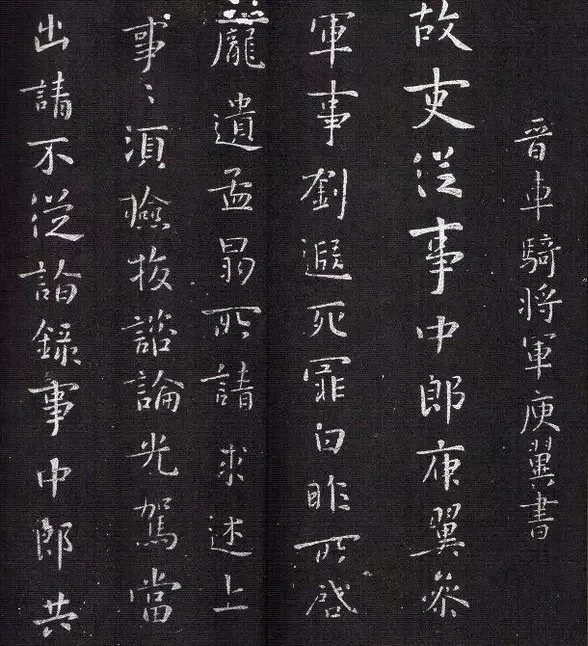 晋車騎将軍庾翼書
故吏従事中郎庾翼参
軍事劉遐死罪白昨所啓
龐遺孟昺所請求述上
事〻須檢校諮論光駕當
出請不従論録事中郎共